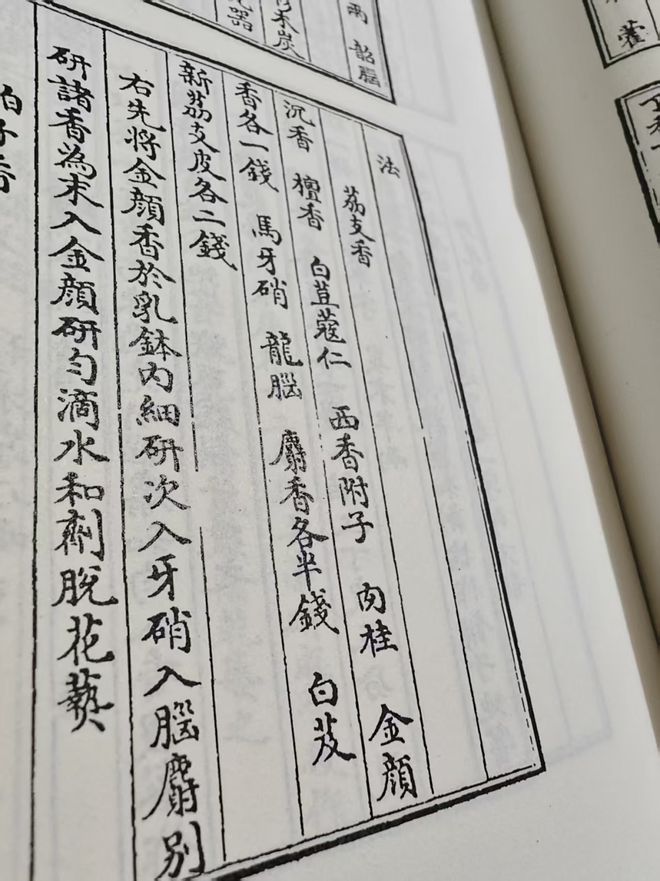 藿
兩 韶腦
木炭
器
法
荔支香
沉香 檀香 白荳蔻仁 西香附子 肉桂 金顏
香各一錢 馬牙硝 龍腦 麝香各半錢 白芨
新荔支皮各二錢
右先將金顏香於乳鉢內細研次入牙硝入腦麝別
研諸香為末入金顏研勻滴水和劑脫花爇
子香